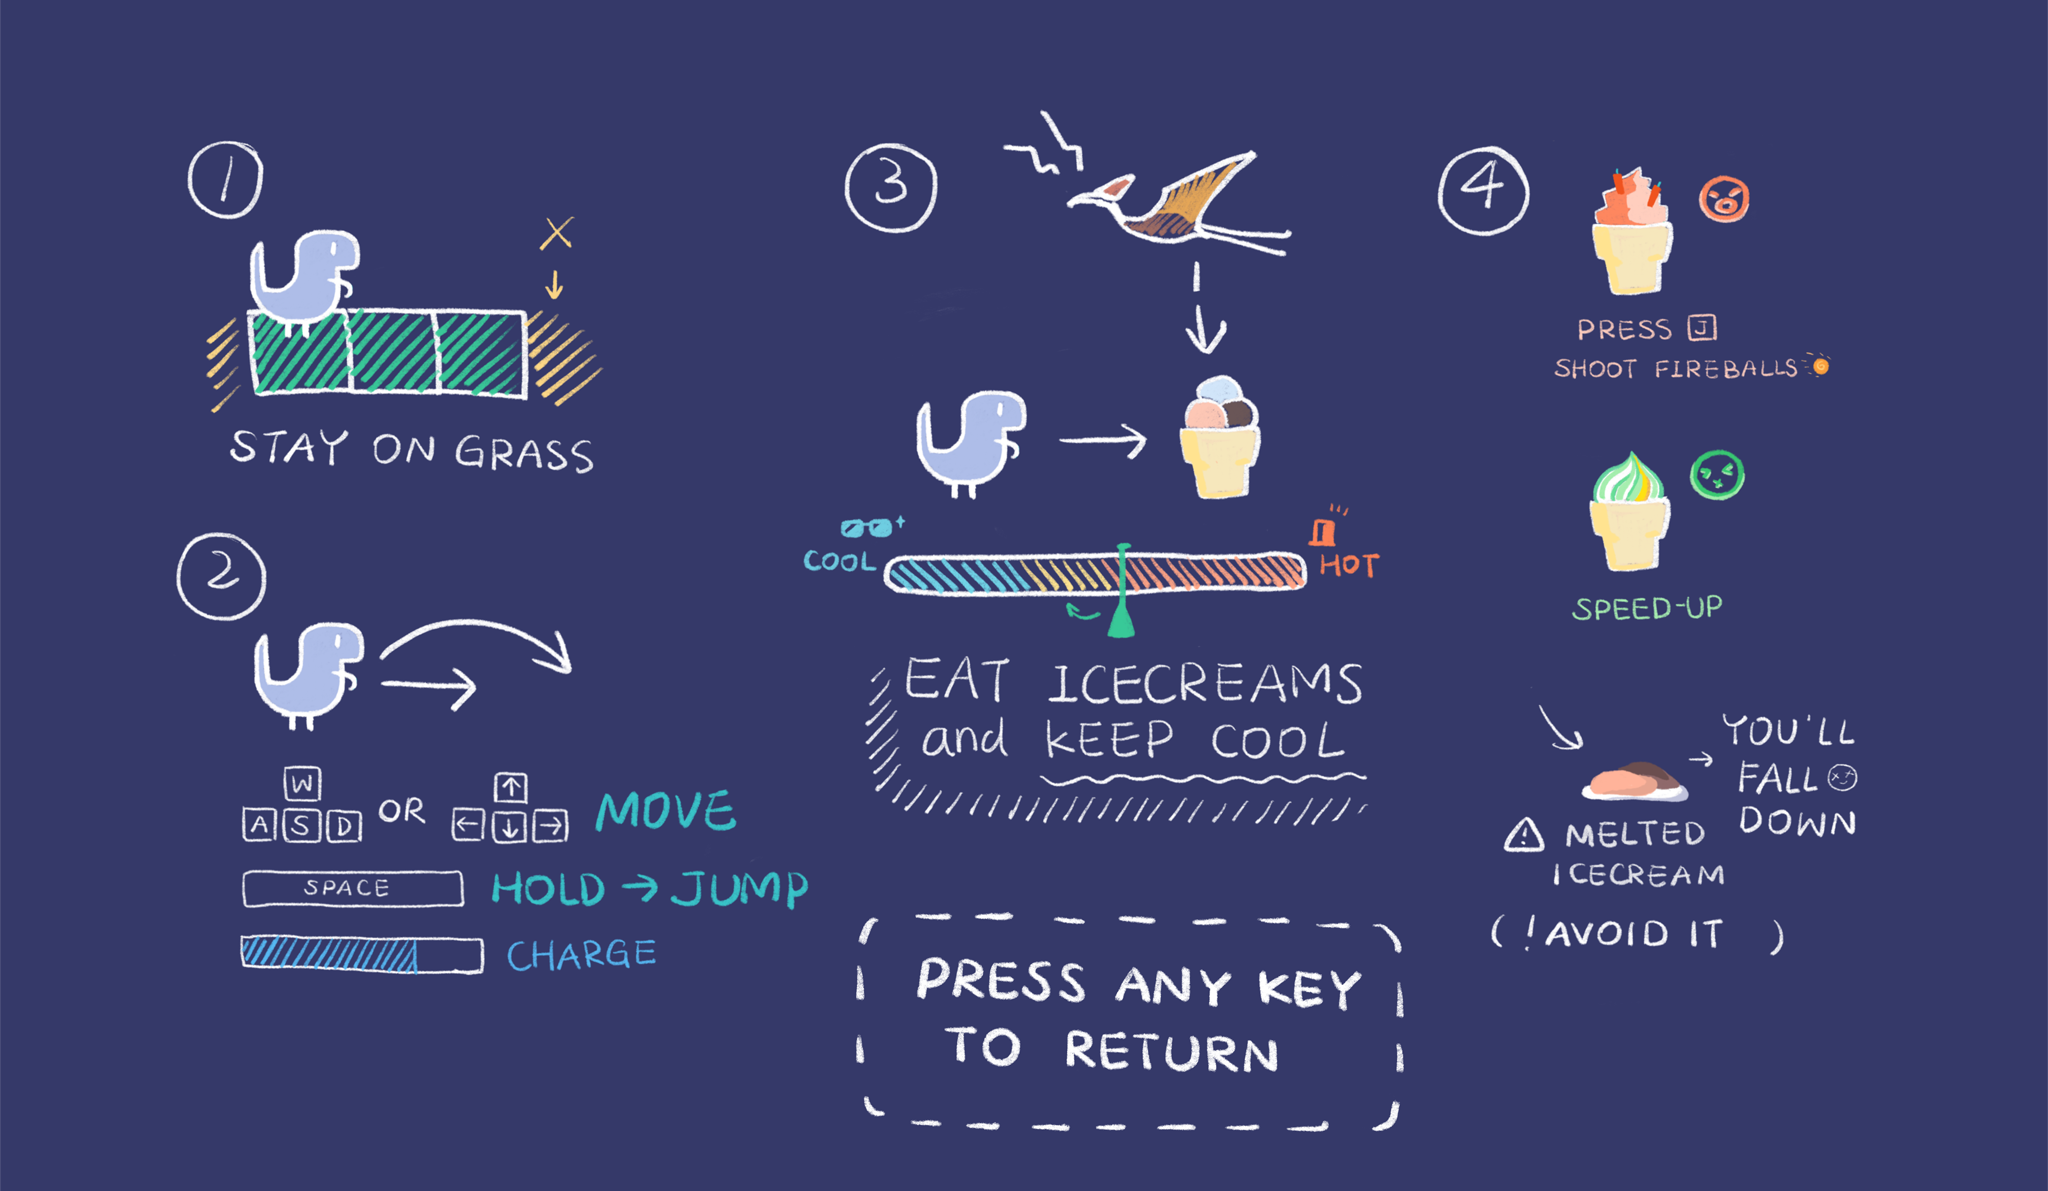 1
STAY ON GRASS
2
W
A S D OR ↑ ← ↓ → MOVE
SPACE HOLD → JUMP
CHARGE
3
COOL HOT
EAT ICECREAMS
and KEEP COOL
PRESS ANY KEY
TO RETURN
4
PRESS J
SHOOT FIREBALLS
SPEED-UP
YOU'LL
FALL
DOWN
MELTED
ICECREAM
( !AVOID IT )